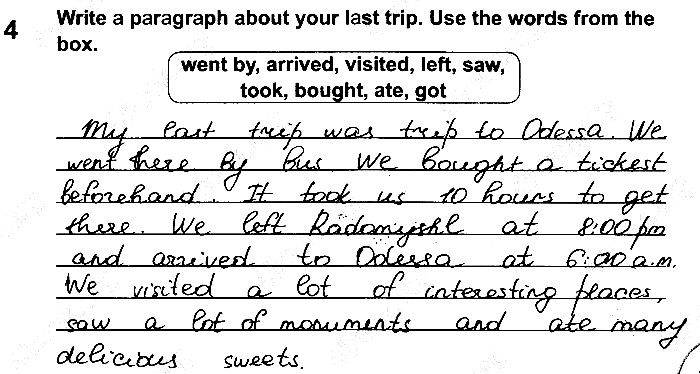 4 Write a paragraph about your last trip. Use the words from the
box.
went by, arrived, visited, left, saw,
took, bought, ate, got
My last trip was trip to Odessa. We
went there by bus We bought a tickest
beforehand. It took us 10 hours to get
there. We left Radomyshl at 8:00 pm
and arrived to Odessa at 6:00 a.m.
We visited a lot of interesting places,
saw a lot of monuments and ate many
delicious sweets.